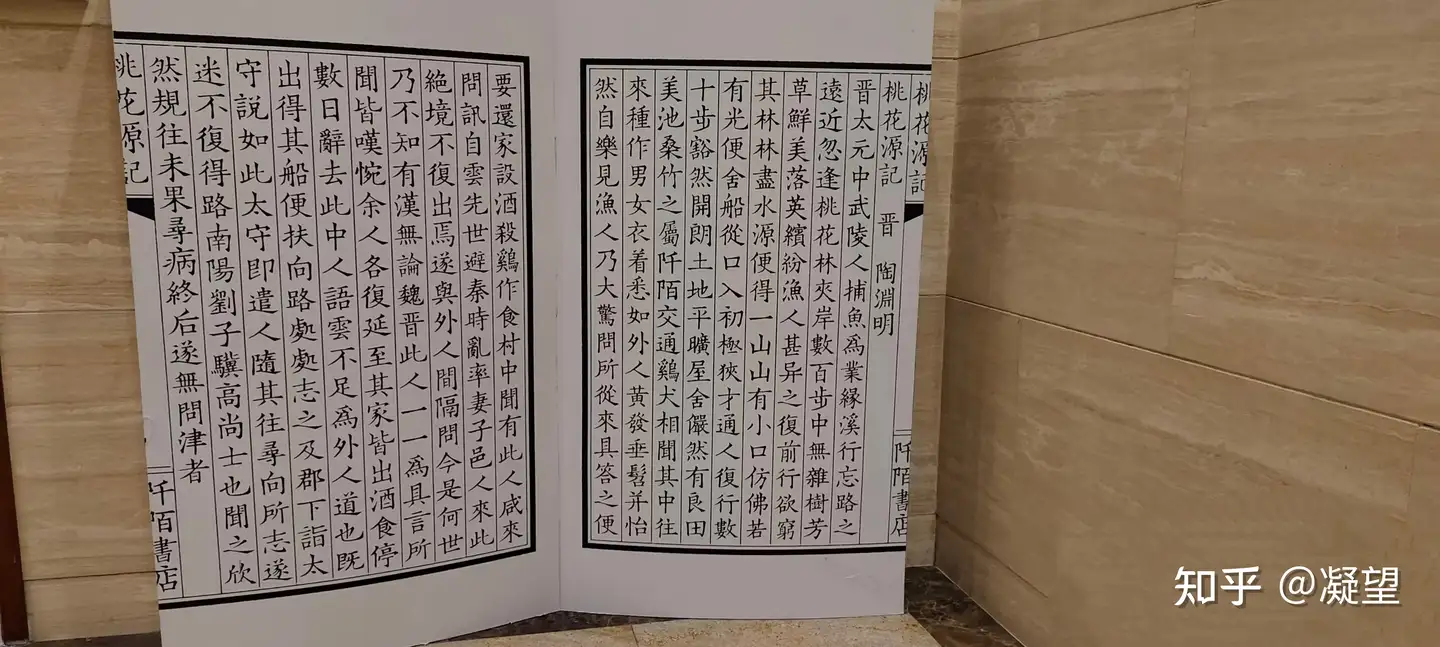 桃花源記
桃花源記 晋 陶淵明
晋太元中武陵人捕魚爲業緣溪行忘路之
遠近忽逢桃花林夾岸數百步中無雜樹芳
草鮮美落英繽紛漁人甚异之復前行欲窮
其林林盡水源便得一山山有小口仿佛若
有光便舍船從口入初極狹才通人復行數
十步豁然開朗土地平曠屋舍儼然有良田
美池桑竹之屬阡陌交通鷄犬相聞其中往
來種作男女衣着悉如外人黃發垂髫并怡
然自樂見漁人乃大驚問所從來具答之便
阡陌書店
要還家設酒殺鷄作食村中聞有此人咸來
問訊自雲先世避秦時亂率妻子邑人來此
絶境不復出焉遂與外人間隔問今是何世
乃不知有漢無論魏晋此人一一爲具言所
聞皆嘆惋余人各復延至其家皆出酒食停
數日辭去此中人語雲不足爲外人道也既
出得其船便扶向路處處志之及郡下詣太
守説如此太守即遣人隨其往尋向所志遂
迷不復得路南陽劉子驥高尚士也聞之欣
然規往未果尋病終后遂無問津者
桃花源記
阡陌書店
知乎 @凝望